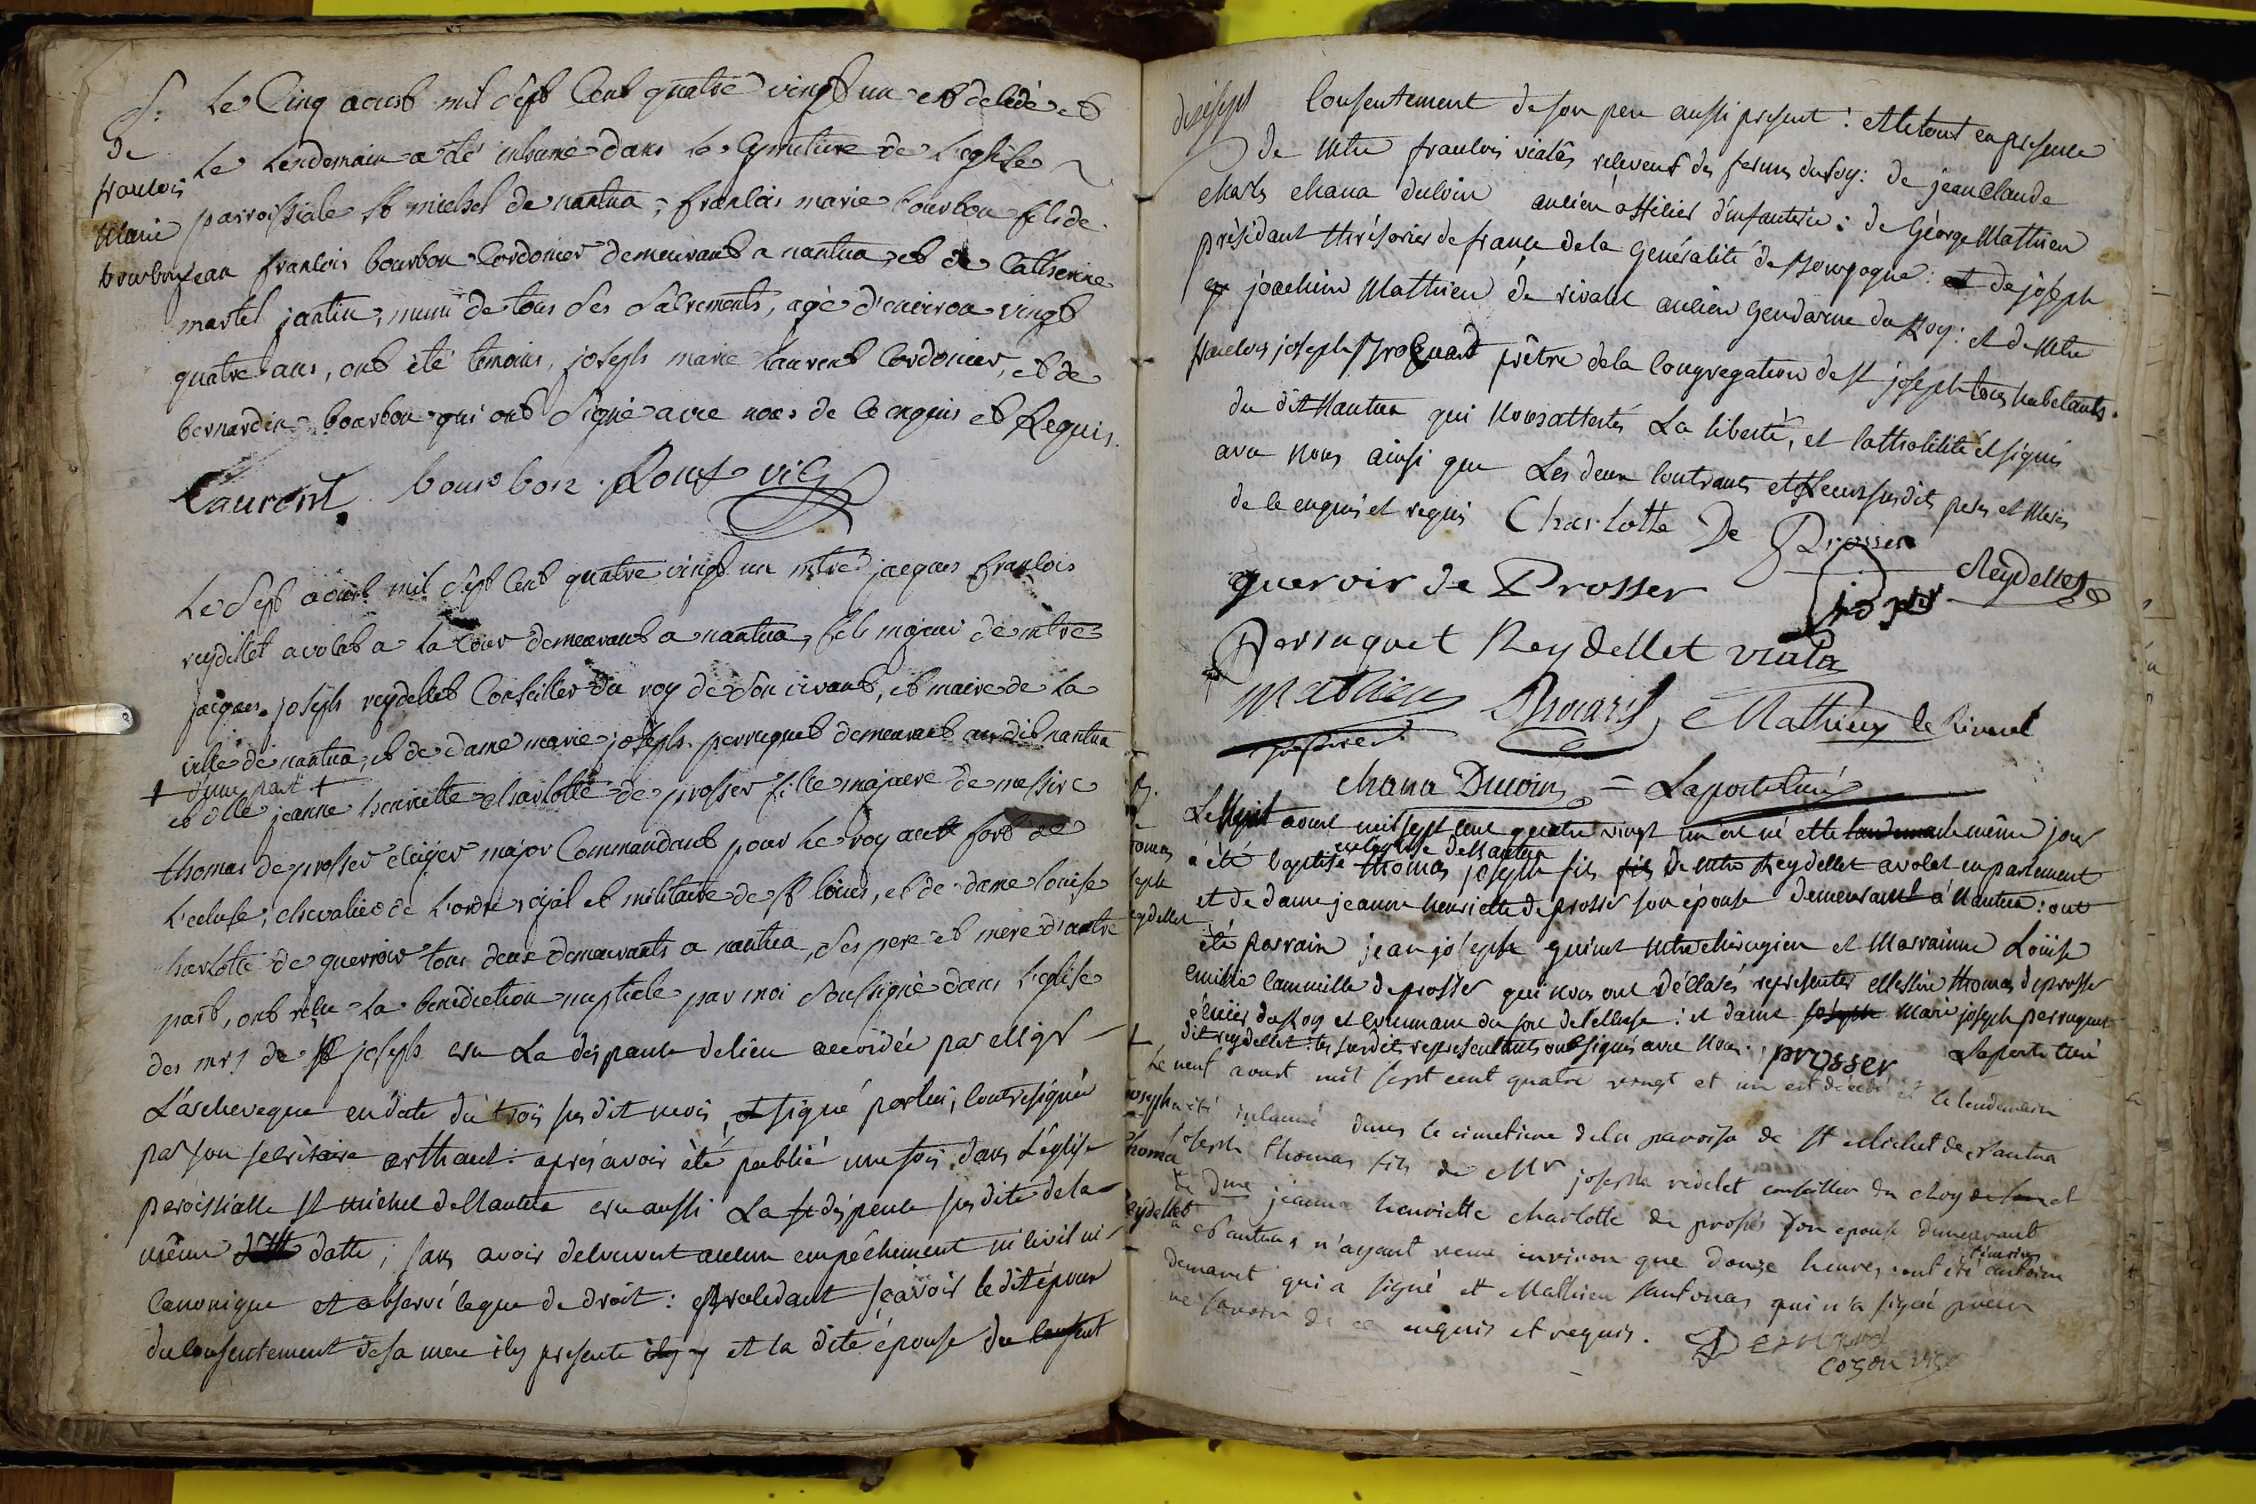 S. Le Cinq aoust mil sept Cent quatre vingt un est decédé et
de Le Lendemain a été inhumé dans Le Cymetiere de L'eglise
francois
marie parroissiale st michel de nantua, francois marie bourbon fils de
bourbon jean francois bourbon Cordonier demeurant a nantua, et de Catherine
martel jantin, muni de tous ses sacrements, agé d'environ vingt
quatre ans, ont été temoins, joseph marie Laurent Cordonier, et de
bernardin bourbon qui ont signé avec nous de ce enquis et Requis.
Laurent bourbon Roux vic
Le sept aoust mil sept Cent quatre vingt un mtre jacques francois
reydellet avocat a la Cour demeurant a nantua, fils majeur de mtre
jacques joseph reydellet Conseiller du roy de son vivant, et maire de La
ville de nantua, et de dame marie joseph perruquet demeurant au dit nantua
+ d'une part +
et dlle jeanne henriette charlotte de prosser fille majeure de messire
thomas de prosser ecuyer major Commandant pour Le roy au fort de
L'ecluse, chevalier de L'ordre royal et militaire de st louis, et de dame louise
charlotte de querroir tous deux demeurants a nantua, ses pere et mere d'autre
part, ont reçu La benediction nuptiale par moi soussigné dans L'eglise
des mrs de st joseph vu La dispance de lieu accordée par Mgr
L'archeveque en date du trois susdit mois, et signé par lui, contresignée
par son secrétaire arthaud: après avoir été publié une fois dans L'église
paroissialle st michel de Nantua vu aussi La dispence susdite de la
même datte; sans avoir decouvert aucun empêchement ni civil ni
Canonique et observé ce que de droit: procedant sçavoir le dit époux
du consentement de sa mere icy presente et la dite épouse du consent
dixsept consentement de son pere aussi present: et le tout en presence
de Mtre francois viala receveur des fermes du Roy: de jean Claude
charles chana ducoin ancien officier d'infanterie: de George Mathieu
président thrésorier de france de la Généralité de Bourgogne: et de joseph
joachim Mathieu de rivaux ancien Gendarme du Roy: et de Mtre
francois joseph Brocard prêtre de la Congregation de st joseph tous habitants
du dit Nantua qui nous attestés La liberté, et catholicité et signés
avec nous ainsi que Les deux Contrants et Leurs susdits peres et Meres
de ce enquis et requis Charlotte De Prosser
quervoir de Prosser Reydellet
Perruquet Reydellet viala
Mathieu Brocard Mathieu de Rivaux
chana Ducoin = Laporte curé
Le sept aoust mil sept cent quatre vingt un est né et le lendemain le même jour
en l'eglise de Nantua
a été baptisé thomas joseph fils de Mtre Reydellet avocat en parlement
et de dame jeanne henriette de prosser son épouse demeurant à Nantua: ont
été parrain jean joseph guinet Mtre chirurgien et Marrainne Louise
emilie Cammille de prosser qui nous ont déclarés representer Messire thomas de prosser
écuier du Roy et Commant du fort de l'ecluse: et dame joseph Marie joseph perruquet
dit reydellet: les susdits representants ont signés avec Nous. prosser Laporte curé
+ Le neuf aoust mil sept cent quatre vingt et un est décédé et le lendemain
joseph a été inhumé dans le cimetiere de la paroisse de st Michel de Nantua
thomas joseph thomas fils de Mr joseph redelet conseiller du Roy et
de dme jeanne henriette charlotte de prosser son epouse demeurant
reydellet a Nantua n'ayant vecu environ que douze heures ont été temoins antoine
demaret qui a signé et Mathieu santonas qui n'a signé pour
ne savoir de ce enquis et requis. Demaret
cozon vic